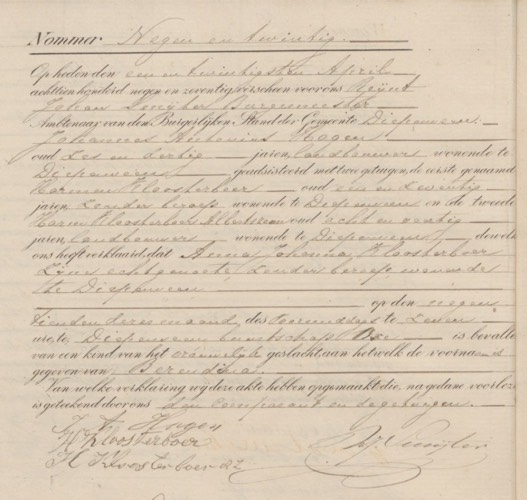 Nommer Negen en twintig.
Op heden den een en twintigsten April
achttienhonderd negen en zeventig, verscheen voor ons Geünt
Johan Burgemeester
Ambtenaar van den Burgerlijken Stand der Gemeente Diepenveen
Johannes Antonius Hagen
oud zes en dertig jaren, landbouwer wonende te
Diepenveen geadsisteerd met twee getuigen, de eerste genaamd
Harmen Kloosterboer oud een en twintig
jaren, zonder beroep wonende te Diepenveen en de tweede
Harm Kloosterboer Albertszoon oud acht en veertig
jaren, landbouwer wonende te Diepenveen, dewelke
ons heeft verklaard, dat Anna Johanna Kloosterboer
Zijne echtgenoote, zonder beroep, wonende
te Diepenveen
op den negen
tienden dezer maand, des voormiddags te zeven
ure, te Diepenveen buurtschap is bevallen
van een kind van het vrouwelijk geslacht aan hetwelk de voornaam is
gegeven van Berendina
Van welke verklaring wij deze akte hebben opgemaakt die, na gedane voorlezing
is geteekend door ons den comparant en de getuigen.
Hagen
H Kloosterboer
H Kloosterboer Az